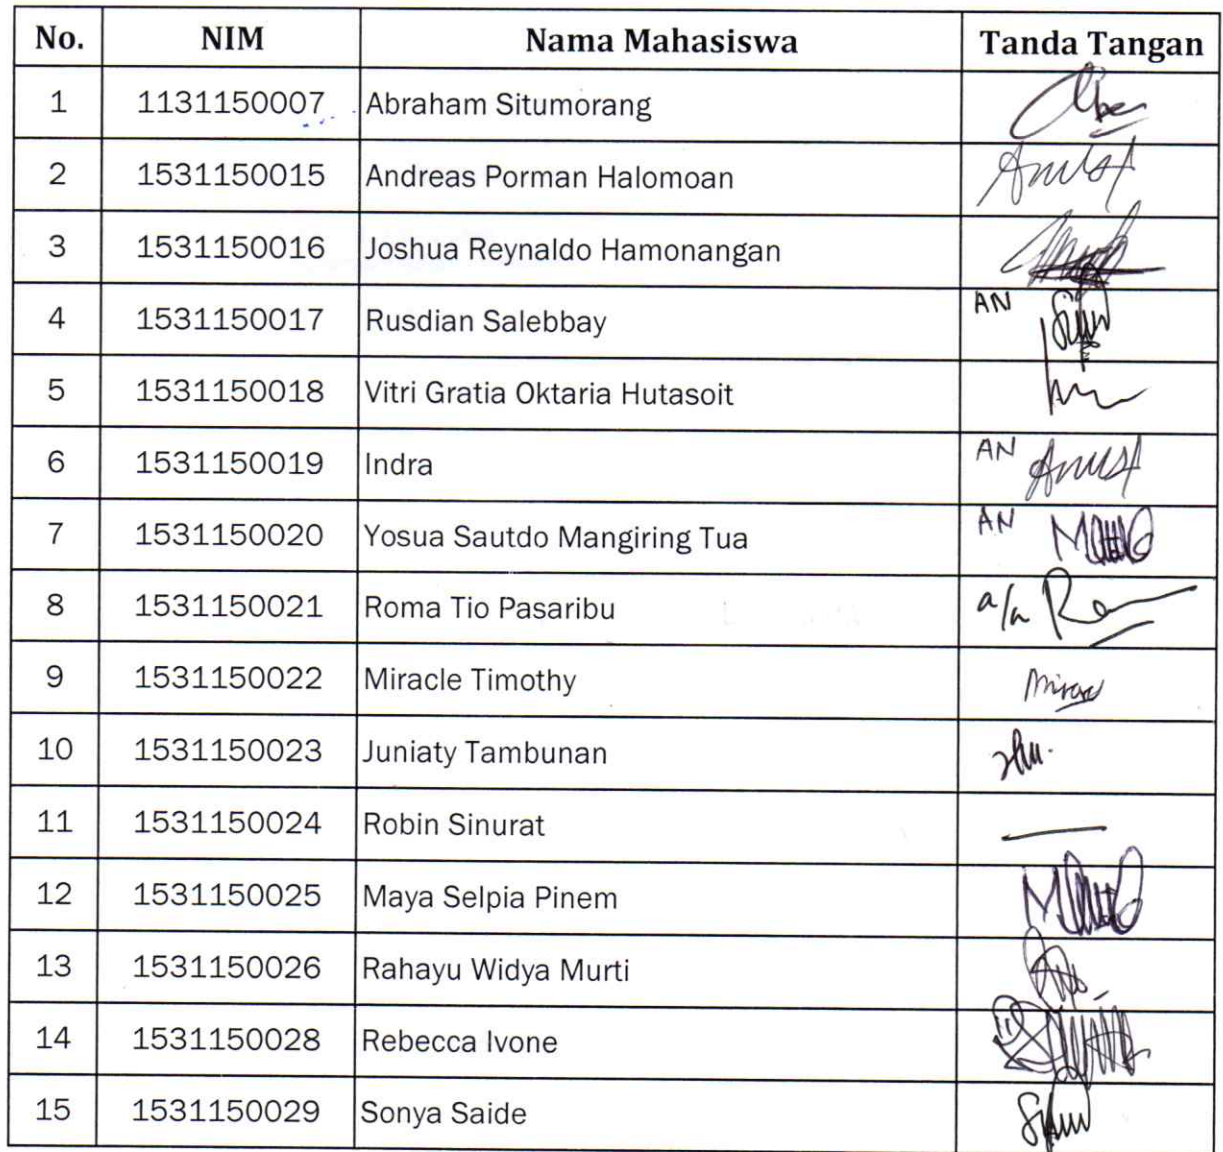 No. NIM Nama Mahasiswa Tanda Tangan
1 1131150007 Abraham Situmorang
2 1531150015 Andreas Porman Halomoan
3 1531150016 Joshua Reynaldo Hamonangan
4 1531150017 Rusdian Salebbay AN
5 1531150018 Vitri Gratia Oktaria Hutasoit
6 1531150019 Indra AN
7 1531150020 Yosua Sautdo Mangiring Tua AN
8 1531150021 Roma Tio Pasaribu a/n
9 1531150022 Miracle Timothy
10 1531150023 Juniaty Tambunan
11 1531150024 Robin Sinurat
12 1531150025 Maya Selpia Pinem
13 1531150026 Rahayu Widya Murti
14 1531150028 Rebecca Ivone
15 1531150029 Sonya Saide